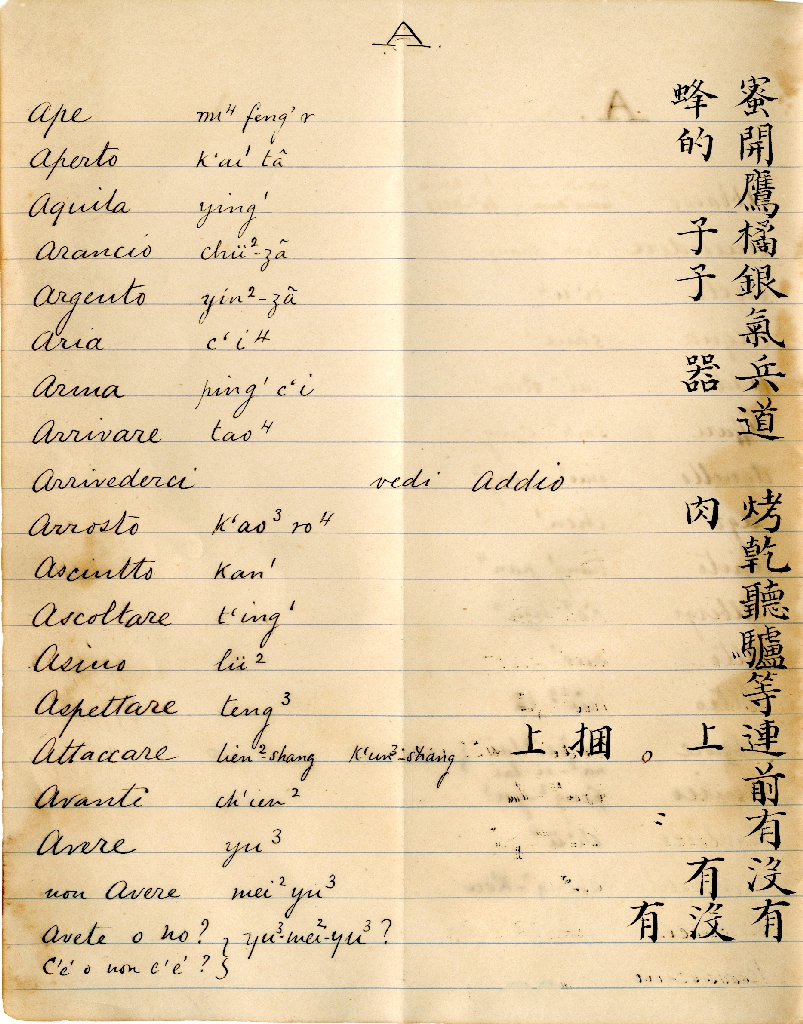 A
Ape mi⁴ feng¹ r 蜜蜂
Aperto k'ai¹ tâ 開的
Aquila ying¹ 鷹
Arancio chü²-zâ 橘子
Argento yin²-zâ 銀子
Aria c'i⁴ 氣
Arma ping¹ c'i 兵器
Arrivare tao⁴ 道
Arrivederci vedi Addio
Arrosto k'ao³ ro⁴ 烤肉
Asciutto kan¹ 乾
Ascoltare t'ing¹ 聽
Asino lü² 驢
Aspettare teng³ 等
Attaccare lien²-shang k'un³-shang 連上。捆上
Avanti ch'ien² 前
Avere yu³ 有
non Avere mei² yu³ 沒有
Avete o no? } yu³-mei²-yu³? 有沒有
C'é o non c'é? }